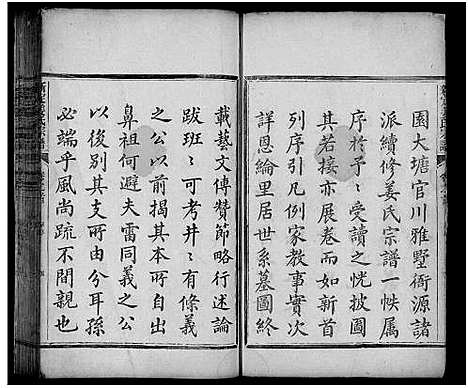 園大塘官川雅墅衙源諸
派續修姜氏宗譜一帙属
序於予〻受讀之恍披圖
其若接亦展卷而如新首
列序引凡例家教事實次
詳恩綸里居世系墓圖終
載藝文傳贊節略行述論
跋班〻可考井〻有條義
之公以前揭其本所自出
鼻祖何避夫雷同義之公
以後別其支所由分耳孫
必端乎風尚疏不間親也